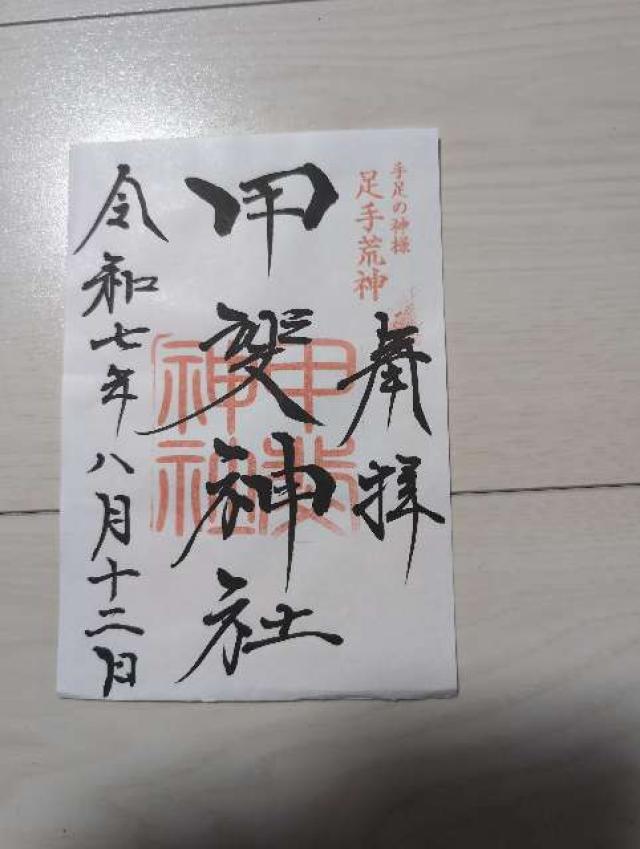 手足の神様
足手荒神
奉拝
甲斐神社
甲斐神社
令和七年八月十二日